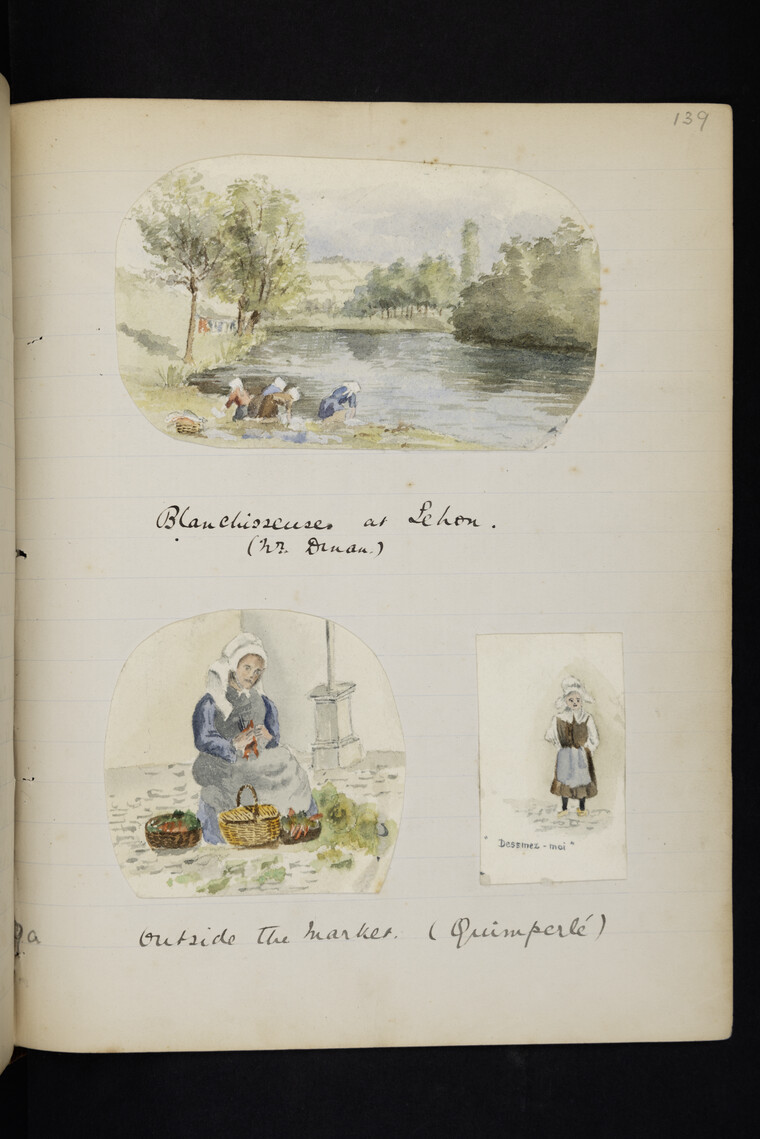 139
Blanchisseuses at Lehon.
(nr. Dinan.)
"Dessinez-moi"
Outside the Market. (Quimperlé)